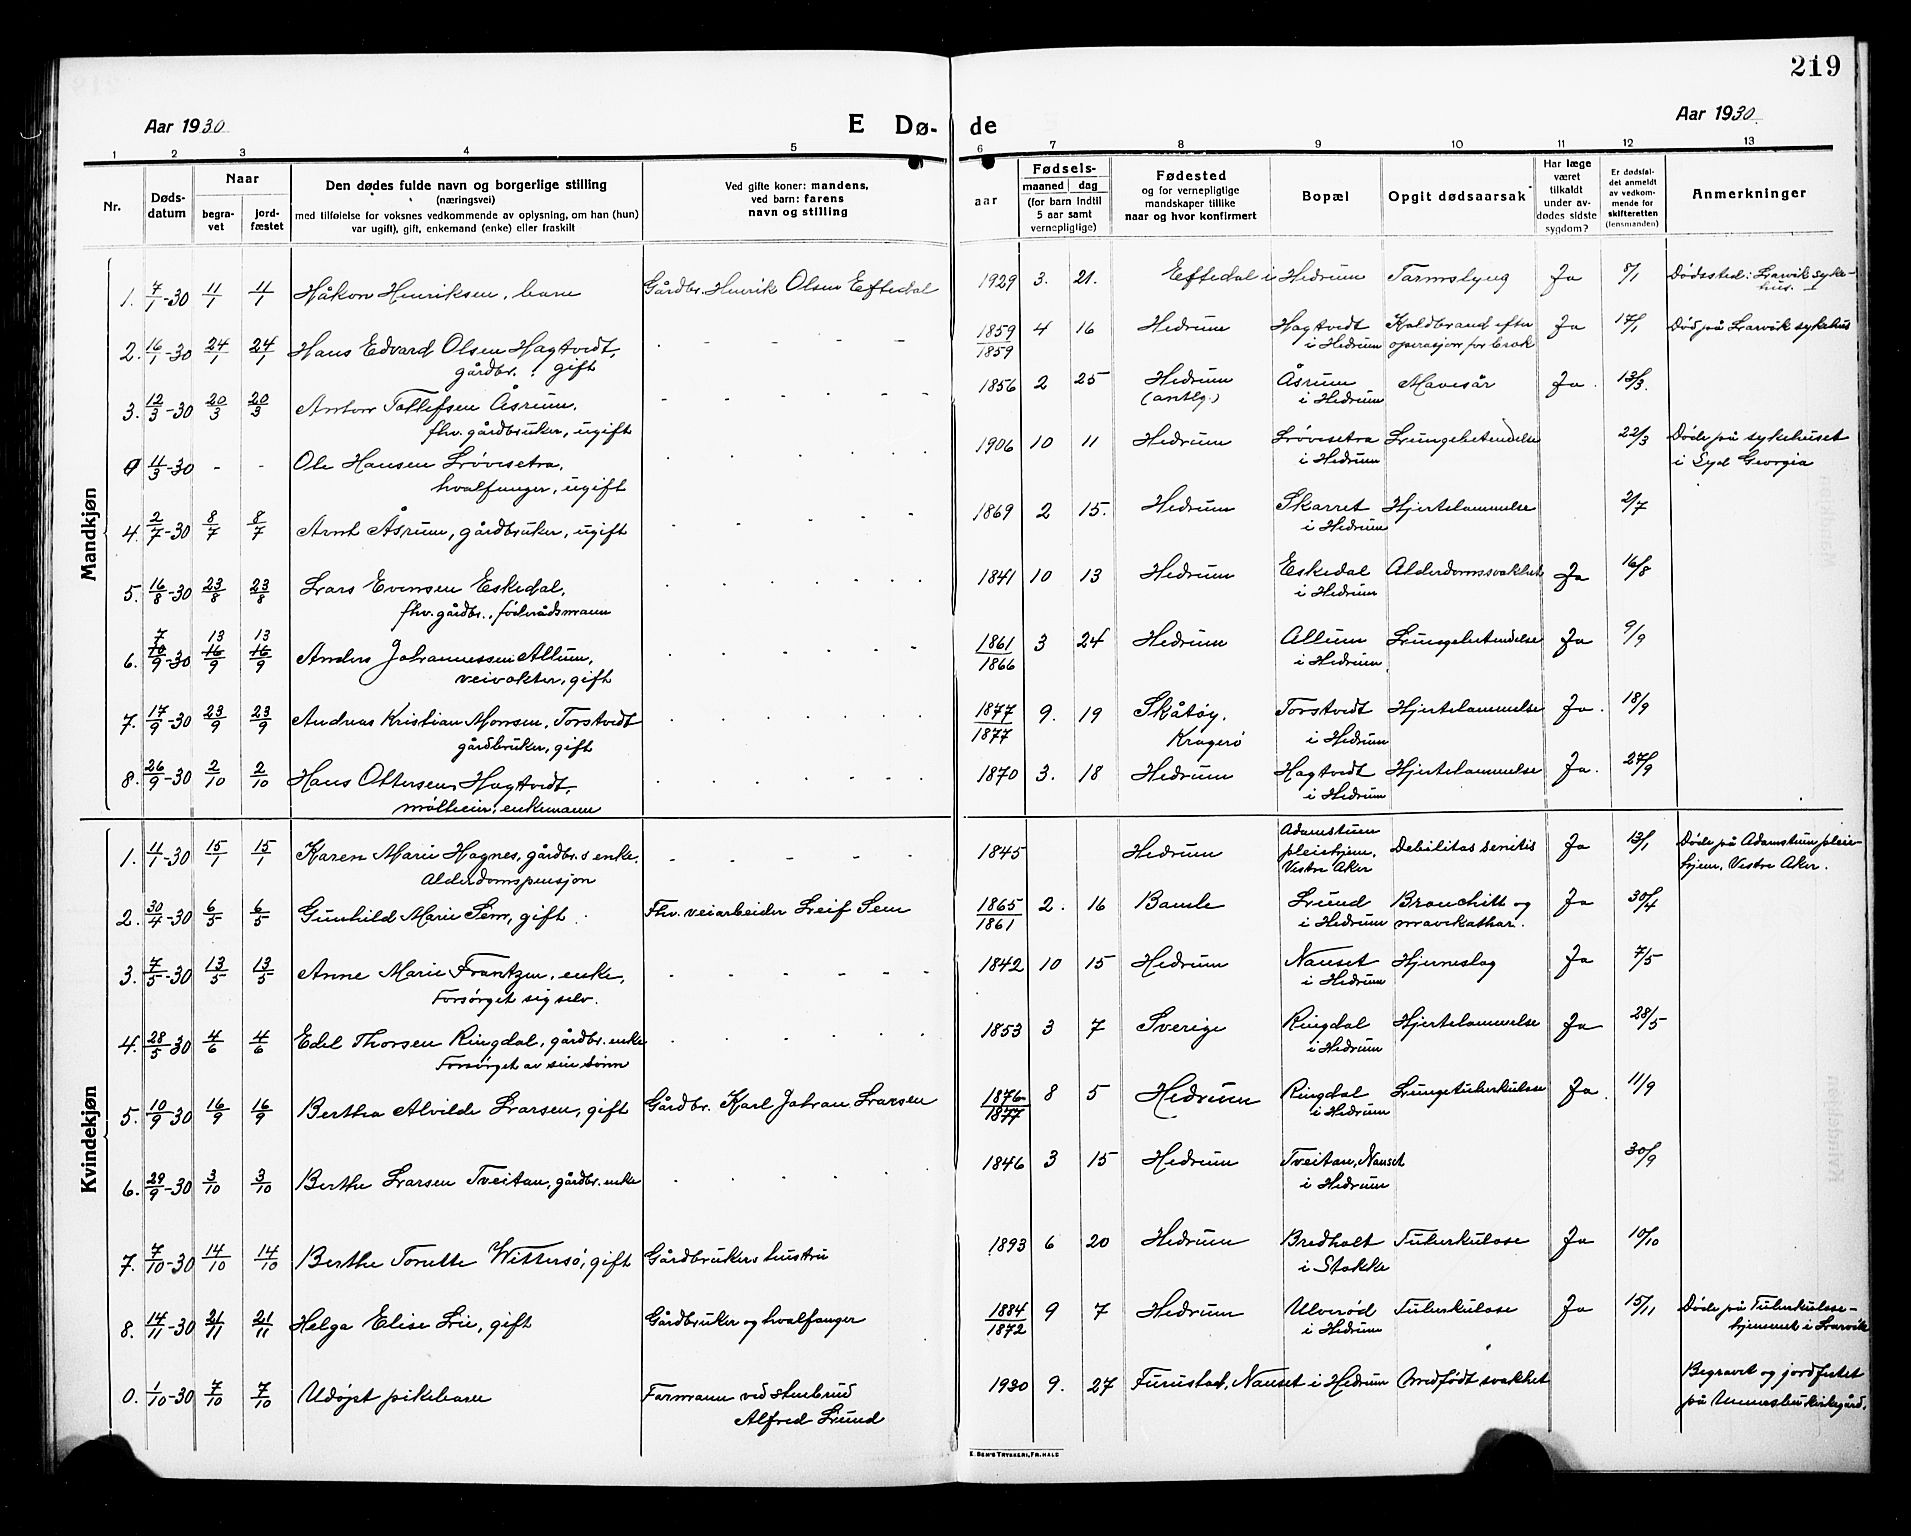 219
Aar 1930
E Dø-
de
Aar 1930.
1 2 3 4 5 6 7 8 9 10 11 12 13
Nr.
Døds-
datum
Naar
begra-
vet
jord-
fæstet
Den dødes fulde navn og borgerlige stilling
(næringsvei)
med tilføielse for voksnes vedkommende av oplysning, om han (hun)
var ugift), gift, enkemand (enke) eller fraskilt
Ved gifte koner: mandens,
ved barn: farens
navn og stilling
aar
Fødsels-
maaned dag
(for barn indtil
5 aar samt
vernepligtige)
Fødested
og for vernepligtige
mandskaper tillike
naar og hvor konfirmert
Bopæl
Opgit dødsaarsak
Har læge
været
tilkaldt
under av-
dødes sidste
sygdom?
Er dødsfal-
det anmeldt
av vedkom-
mende for
skifteretten
(lensmanden)
Anmerkninger
Mandkjøn
1. 7/1-30 11/1 11/1 Håkon Henriksen, barn Gårdbr. Henrik Olsen Eftedal 1929 3. 21. Eftedal i Hedrum Tarmslyng Ja 8/1 Dødssted: Larvik syke-
hus.
2. 16/1-30 24/1 24/1 Hans Edvard Olsen Hagtvedt, - - - - - 1859/1859 4 16 Hedrum Hagtvedt Koldbrand efter Ja 17/1 Død på Larvik sykehus
gårdbr., gift i Hedrum operasjon for brok
3. 12/3-30 20/3 20/3 Anton Tollefsen Åsrum, - - - - - 1856 2 25 Hedrum Åsrum Mavesår Ja. 13/3.
fhv. gårdbruker, ugift (antlg.) i Hedrum
0 11/3-30 - - Ole Hansen Løvesetra, 1906 10 11 Hedrum Løvesetra Lungebetendelse 22/3 Døde på sykehuset
hvalfanger, ugift i Hedrum i Syd Georgia
4. 2/7-30 8/7 8/7 Arnt Åsrum, gårdbruker, ugift 1869 2 15. Hedrum Skarret Hjertelammelse 2/7
i Hedrum
5. 16/8-30 23/8 23/8 Lars Evensen Eskedal, 1841 10 13 Hedrum Eskedal Alderdomssvakhet Ja 16/8
fhv. gårdbr., føderådsmann i Hedrum
6. 7/10/9-30 13/16/9 13/16/9 Anders Johannessen Allum, 1861/1866 3 24 Hedrum Allum Lungebetendelse Ja 9/9
veivokter, gift i Hedrum
7. 17/9-30 23/9 23/9 Andreas Kristian Monsen, Torstvedt 1877/1877 9. 19 Skåtøy, Torstvedt Hjertelammelse Ja. 18/9
gårdbruker, gift Kragerø i Hedrum
8. 26/9-30 2/10 2/10 Hans Ottersen Hagtvedt, 1870 3. 18 Hedrum Hagtvedt Hjertelammelse Ja. 27/9
enkemann i Hedrum
Kvindekjøn
1. 11/1-30 15/1 15/1 Karen Marie Hagnes, gårdbr.s enke. - - - - - 1845 Hedrum Adamstuen Debilitas senilis Ja 13/1 Døde på Adamstuen pleie-
Alderdomspensjon pleiehjem, Vestre Aker hjem, Vestre Aker.
2. 30/4-30 6/5 6/5 Gunhild Marie Sem, gift Fhv. veiarbeider Leif Sem 1865/1861 2. 16 Bamle Lund Bronchitt og Ja 30/4
i Hedrum mavekathar.
3. 7/5-30 13/5 13/5 Anne Marie Frantzen, enke, - - - - - 1842 10 15 Hedrum Nanset Hjerneslag Ja 7/5
Forsørget sig selv. i Hedrum
4. 28/5-30 4/6 4/6 Edel Thorsen Ringdal, gårdbr. enke 1853 3 7 Sverige Ringdal Hjertelammelse Ja 28/5
Forsørget av sin sønn i Hedrum
5. 10/9-30 16/9 16/9 Bertha Alvilde Larsen, gift Gårdbr. Karl Johan Larsen 1876/1877 8 5 Hedrum Ringdal Lungetuberkulose Ja. 11/9
i Hedrum
6. 29/9-30 3/10 3/10 Berthe Larsen Tveitan, gårdbr. enke 1846 3 15 Hedrum Tveitan, Nanset 30/9
i Hedrum
7. 7/10-30 14/10 14/10 Berthe Torette Wittersø, gift Gårdbrukers hustru 1893 6 20 Hedrum Bredholt Tuberkulose Ja 10/10
i Stokke
8. 14/11-30 21/11 21/11 Helga Elise Lie, gift Gårdbruker og hvalfanger 1884/1872 9 7 Hedrum Ulverød Tuberkulose Ja 15/11 Døde på Tuberkulose-
i Hedrum hjemmet i Larvik
0. 1/10-30 7/10 7/10 Udøpt pikebarn Formann ved stenbrud 1930 9. 27 Furustad, Nanset i Hedrum Medfødt svakhet Begravet og jordfestet
Alfred Lund på Undersbu kirkegård.
E. SEM'S TRYKKERI, FR.HALD